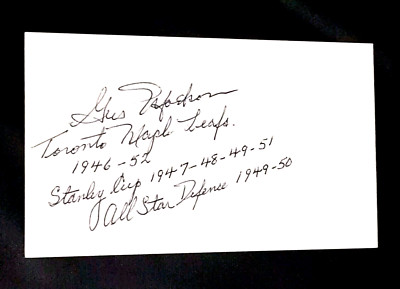 Gus Mortson
Toronto Maple Leafs.
1946-52
Stanley Cup 1947-48-49-51
All Star Defence 1949-50